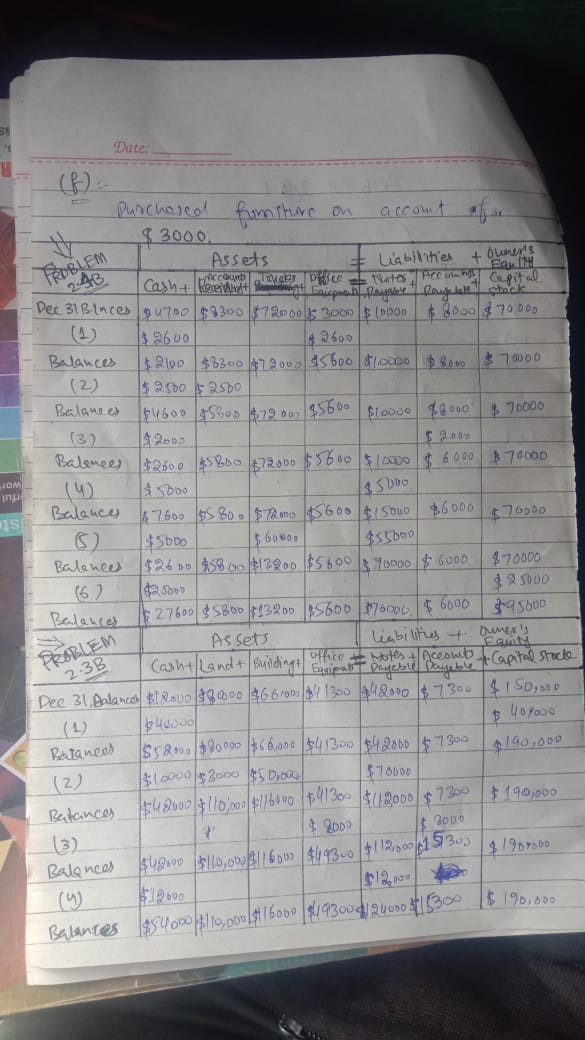 Date:
(f):-
Purchased furniture on account of
$3000.
PROBLEM 2.4B
Assets = Liabilities + Owner's Equity
Cash + Accounts Receivable + Trucks + Office Equipment = Notes Payable + Accounts Payable + Capital Stock
Dec 31 Blnces $4700 $3300 $72000 $3000 $10000 $8000 $70000
(1) $2600 $2600
Balances $2100 $3300 $72000 $5600 $10000 $8000 $70000
(2) $2500 $2500
Balances $4600 $5800 $72000 $5600 $10000 $8000 $70000
(3) $2000 $2000
Balances $2600 $5800 $72000 $5600 $10000 $6000 $70000
(4) $5000 $5000
Balances $7600 $5800 $72000 $5600 $15000 $6000 $70000
(5) $5000 $60000 $55000
Balances $2600 $5800 $13200 $5600 $70000 $6000 $70000
(6) $25000 $25000
Balances $27600 $5800 $13200 $5600 $70000 $6000 $95000
PROBLEM 2.3B
Assets Liabilities + Owner's Equity
Cash + Land + Building + Office Equipment = Notes Payable + Accounts Payable + Capital stock
Dec 31, Balances $12000 $66,000 $41300 $42000 $7300 $150,000
(1) $40000 $40,000
Balances $52000 $80000 $66,000 $41300 $42000 $7300 $190,000
(2) $10000 $3000 $50,000 $70000
Balances $42000 $110,000 $116000 $41300 $112000 $7300 $190,000
(3) $8000 $8000
Balances $42000 $110,000 $116000 $49300 $112,000 $15300 $190,000
(4) $12000 $12,000
Balances $54000 $110,000 $116000 $49300 $124000 $15300 $190,000